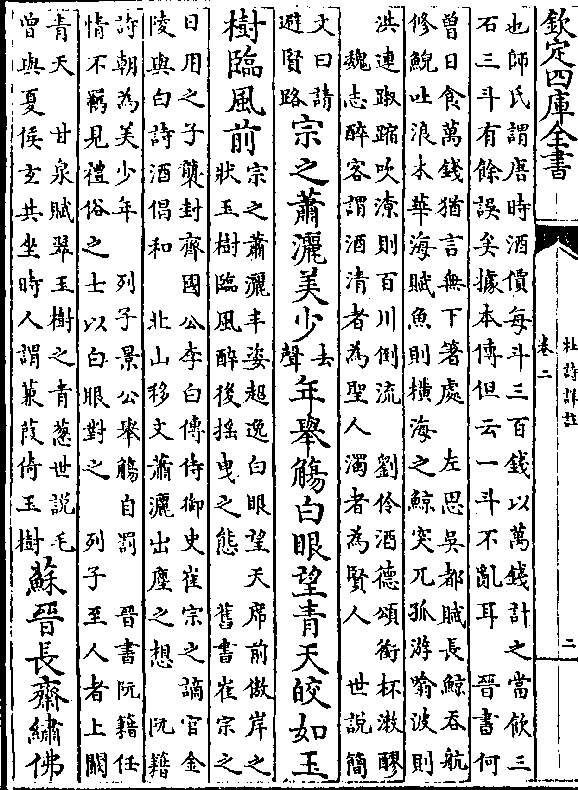 欽定四庫全書
杜詩詳註
卷二
二
也師氏謂唐時酒價每斗三百錢以萬錢計之當飲三
石三斗有餘誤矣據本傳但云一斗不亂耳　晉書何
曾日食萬錢猶言無下箸處　左思吳都賦長鯨吞航
修鯢吐浪木華海賦魚則橫海之鯨突兀孤游噏波則
洪連踧蹜吹澇則百川倒流　劉伶酒德頌銜杯漱醪
魏志醉客謂酒清者為聖人濁者為賢人　世說簡
文曰請
避賢路
宗之蕭灑美少
去
聲
年舉觴白眼望青天皎如玉
樹臨風前
宗之蕭灑丰姿超逸白眼望天席前傲岸之
狀玉樹臨風醉後搖曳之態　舊書崔宗之
日用之子襲封齊國公李白傳侍御史崔宗之謫官金
陵與白詩酒倡和　北山移文蕭灑出塵之想　阮籍
詩朝為美少年　列子景公舉觴自罰　晉書阮籍任
情不羈見禮俗之士以白眼對之　列子至人者上闚
青天　甘泉賦翠玉樹之青葱世說毛
曾與夏侯玄共坐時人謂蒹葭倚玉樹
蘇晉長齋繡佛